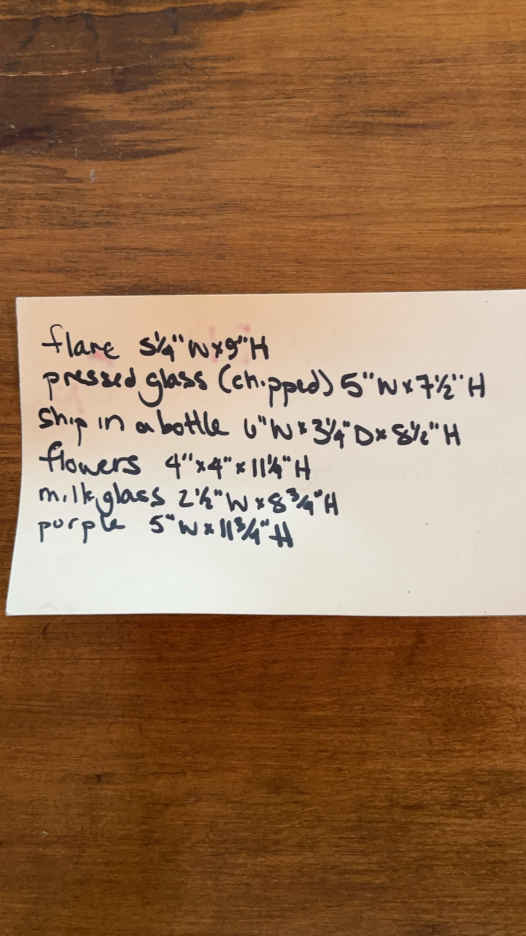 flare 5¼" W x 9" H
pressed glass (chipped) 5" W x 7½" H
Ship in a bottle 6" W x 3¼" D x 8½" H
flowers 4" x 4" x 11¼" H
milk glass 2½" W x 8¾" H
purple 5" W x 11¾" H